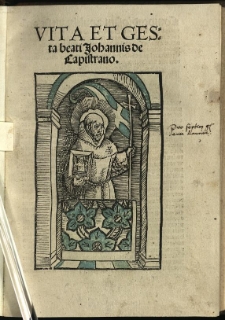 VITA ET GES:
ta beati Johannis de
Capistrano.